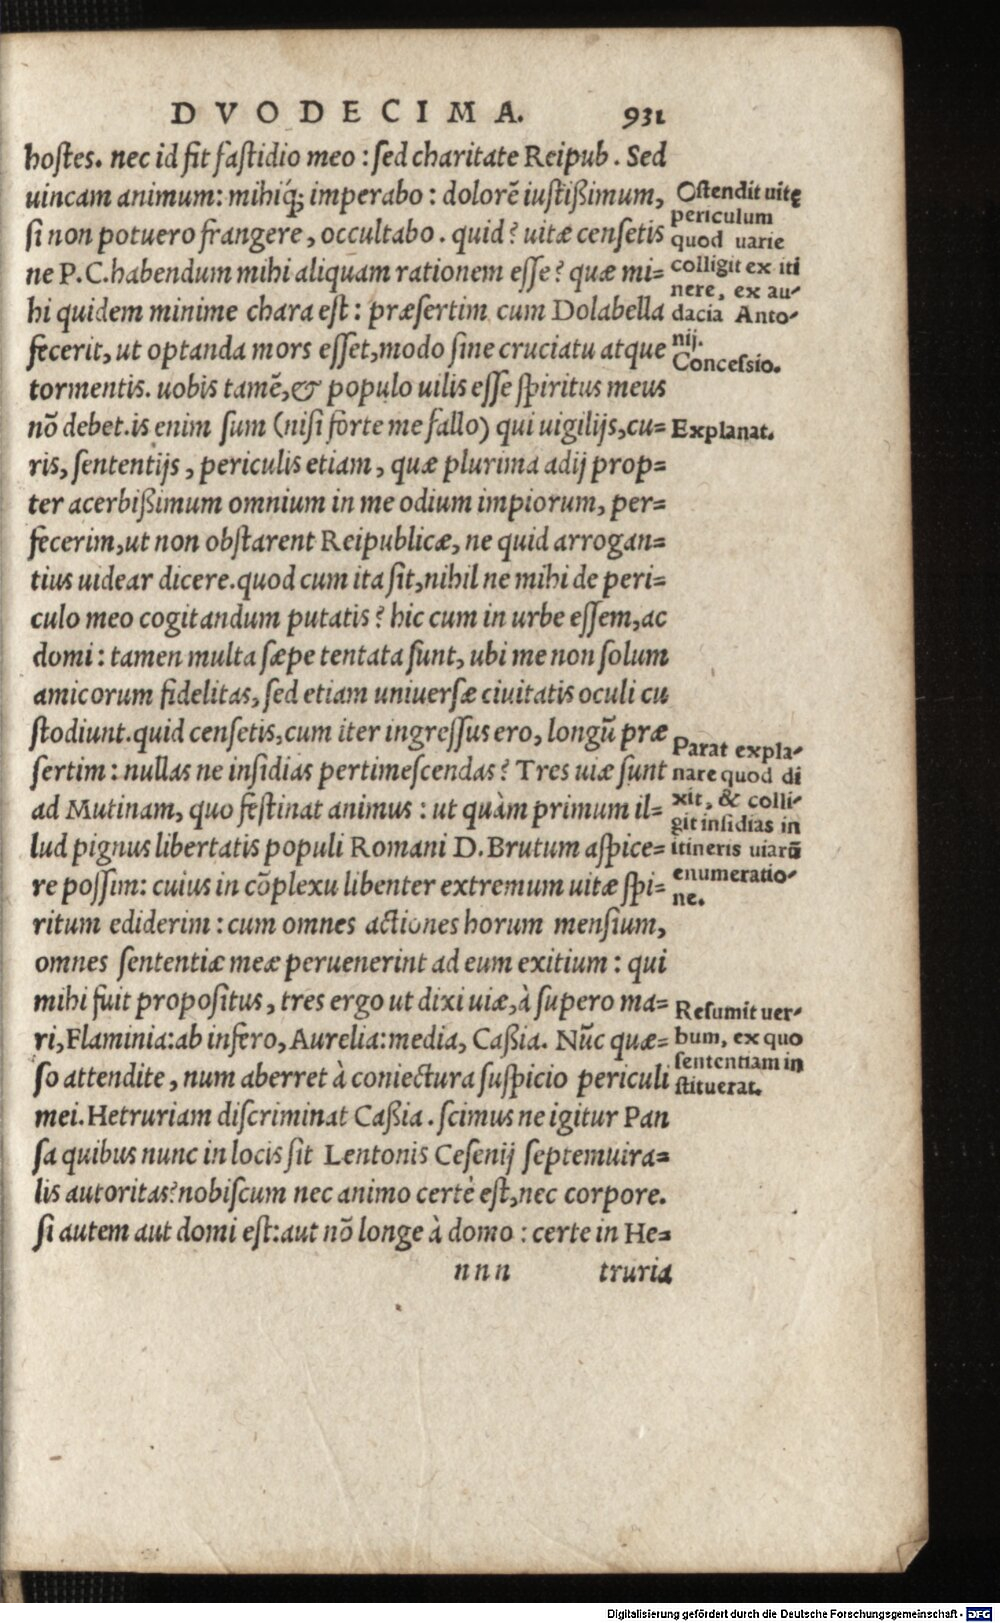 DVODECIMA. 931
hostes. nec id fit fastidio meo : sed charitate Reipub. Sed
uincam animum: mihiq́; imperabo : dolorē iustißimum,
si non potuero frangere, occultabo. quid? uitæ censetis
ne P.C.habendum mihi aliquam rationem esse? quæ mi=
hi quidem minime chara est : præsertim cum Dolabella
fecerit, ut optanda mors esset,modo sine cruciatu atque
tormentis. uobis tamē,& populo uilis esse spiritus meus
nō debet.is enim sum (nisi forte me fallo) qui uigilijs,cu=
ris, sententijs, periculis etiam, quæ plurima adij prop=
ter acerbißimum omnium in me odium impiorum, per=
fecerim,ut non obstarent Reipublicæ, ne quid arrogan=
tius uidear dicere.quod cum ita sit,nihil ne mihi de peri=
culo meo cogitandum putatis? hic cum in urbe essem,ac
domi : tamen multa sæpe tentata sunt, ubi me non solum
amicorum fidelitas, sed etiam uniuersæ ciuitatis oculi cu
stodiunt.quid censetis,cum iter ingressus ero, longū præ
sertim : nullas ne insidias pertimescendas? Tres uiæ sunt
ad Mutinam, quo festinat animus : ut quàm primum il=
lud pignus libertatis populi Romani D.Brutum aspice=
re possim: cuius in cōplexu libenter extremum uitæ spi=
ritum ediderim : cum omnes actiones horum mensium,
omnes sententiæ meæ peruenerint ad eum exitium : qui
mihi fuit propositus, tres ergo ut dixi uiæ,à supero ma=
ri,Flaminia:ab infero, Aurelia:media, Caßia. Nūc quæ=
so attendite, num aberret à coniectura suspicio periculi
mei.Hetruriam discriminat Caßia. scimus ne igitur Pan
sa quibus nunc in locis sit Lentonis Cesenij septemuira=
lis autoritas?nobiscum nec animo certè est,nec corpore.
si autem aut domi est:aut nō longe à domo : certe in He=
nnn truria
Ostendit uitę
periculum
quod uarie
colligit ex iti
nere, ex au-
dacia Anto-
nij.
Concessio.
Explanat.
Parat expla-
nare quod di
xit, & colli-
git insidias in
itineris uiarū
enumeratio-
ne.
Resumit uer-
bum, ex quo
sententiam in
stituerat.
Digitalisierung gefördert durch die Deutsche Forschungsgemeinschaft - DFG